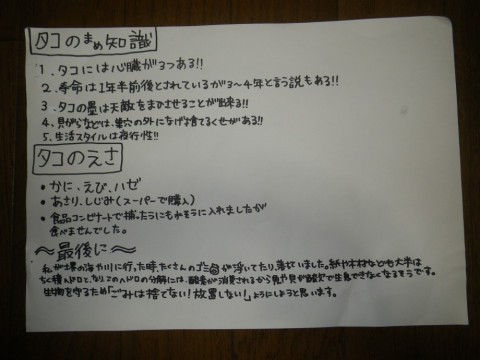 タコのまめ知識
1. タコには心臓が3つある!!
2. 寿命は1年半前後とされているが3〜4年と言う説もある!!
3. タコの墨は天敵をまひさせることが出来る!!
4. 貝がらなどは、巣穴の外になげ捨てるくせがある!!
5. 生活スタイルは夜行性!!
タコのえさ
• かに、えび、ハゼ
• あさり、しじみ(スーパーで購入)
• 食品コンビナートで捕ったうにもかそうに入れましたが
食べませんでした。
〜最後に〜
私が堺の海や川に行った時、たくさんのゴミが浮いてたり、落ちていました。紙や木材なども大半は
ちく積しヘドロとなりこのヘドロの分解には、酸素が消費されるから魚や貝が酸欠で生息できなくなるそうです。
生物を守るため「ごみは捨てない!放置しない!」ようにしようと思います。